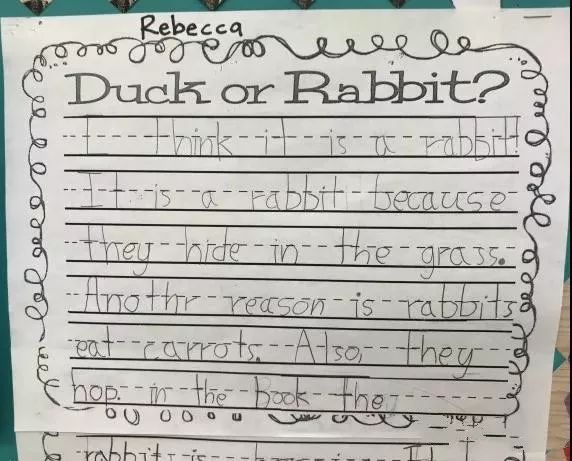 Rebecca
Duck or Rabbit?
I think it is a rabbit!
It is a rabbit because
they hide in the grass.
Anothr reason is rabbits
eat carrots. Also, they
hop. in the book the
rabbit is